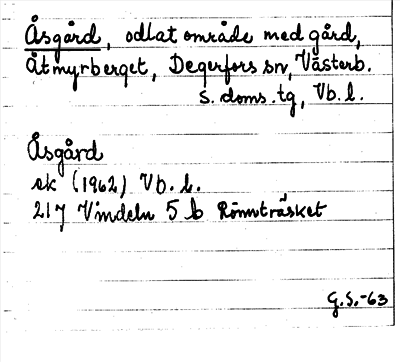 Åsgård, odlat område med gård,
Åtmyrberget, Degerfors sn, Västerb.
s. doms. tg, Vb. l.
Åsgård
ek (1962) Vb. l.
217 Vindeln 5 b Rönnträsket
G.S.-63